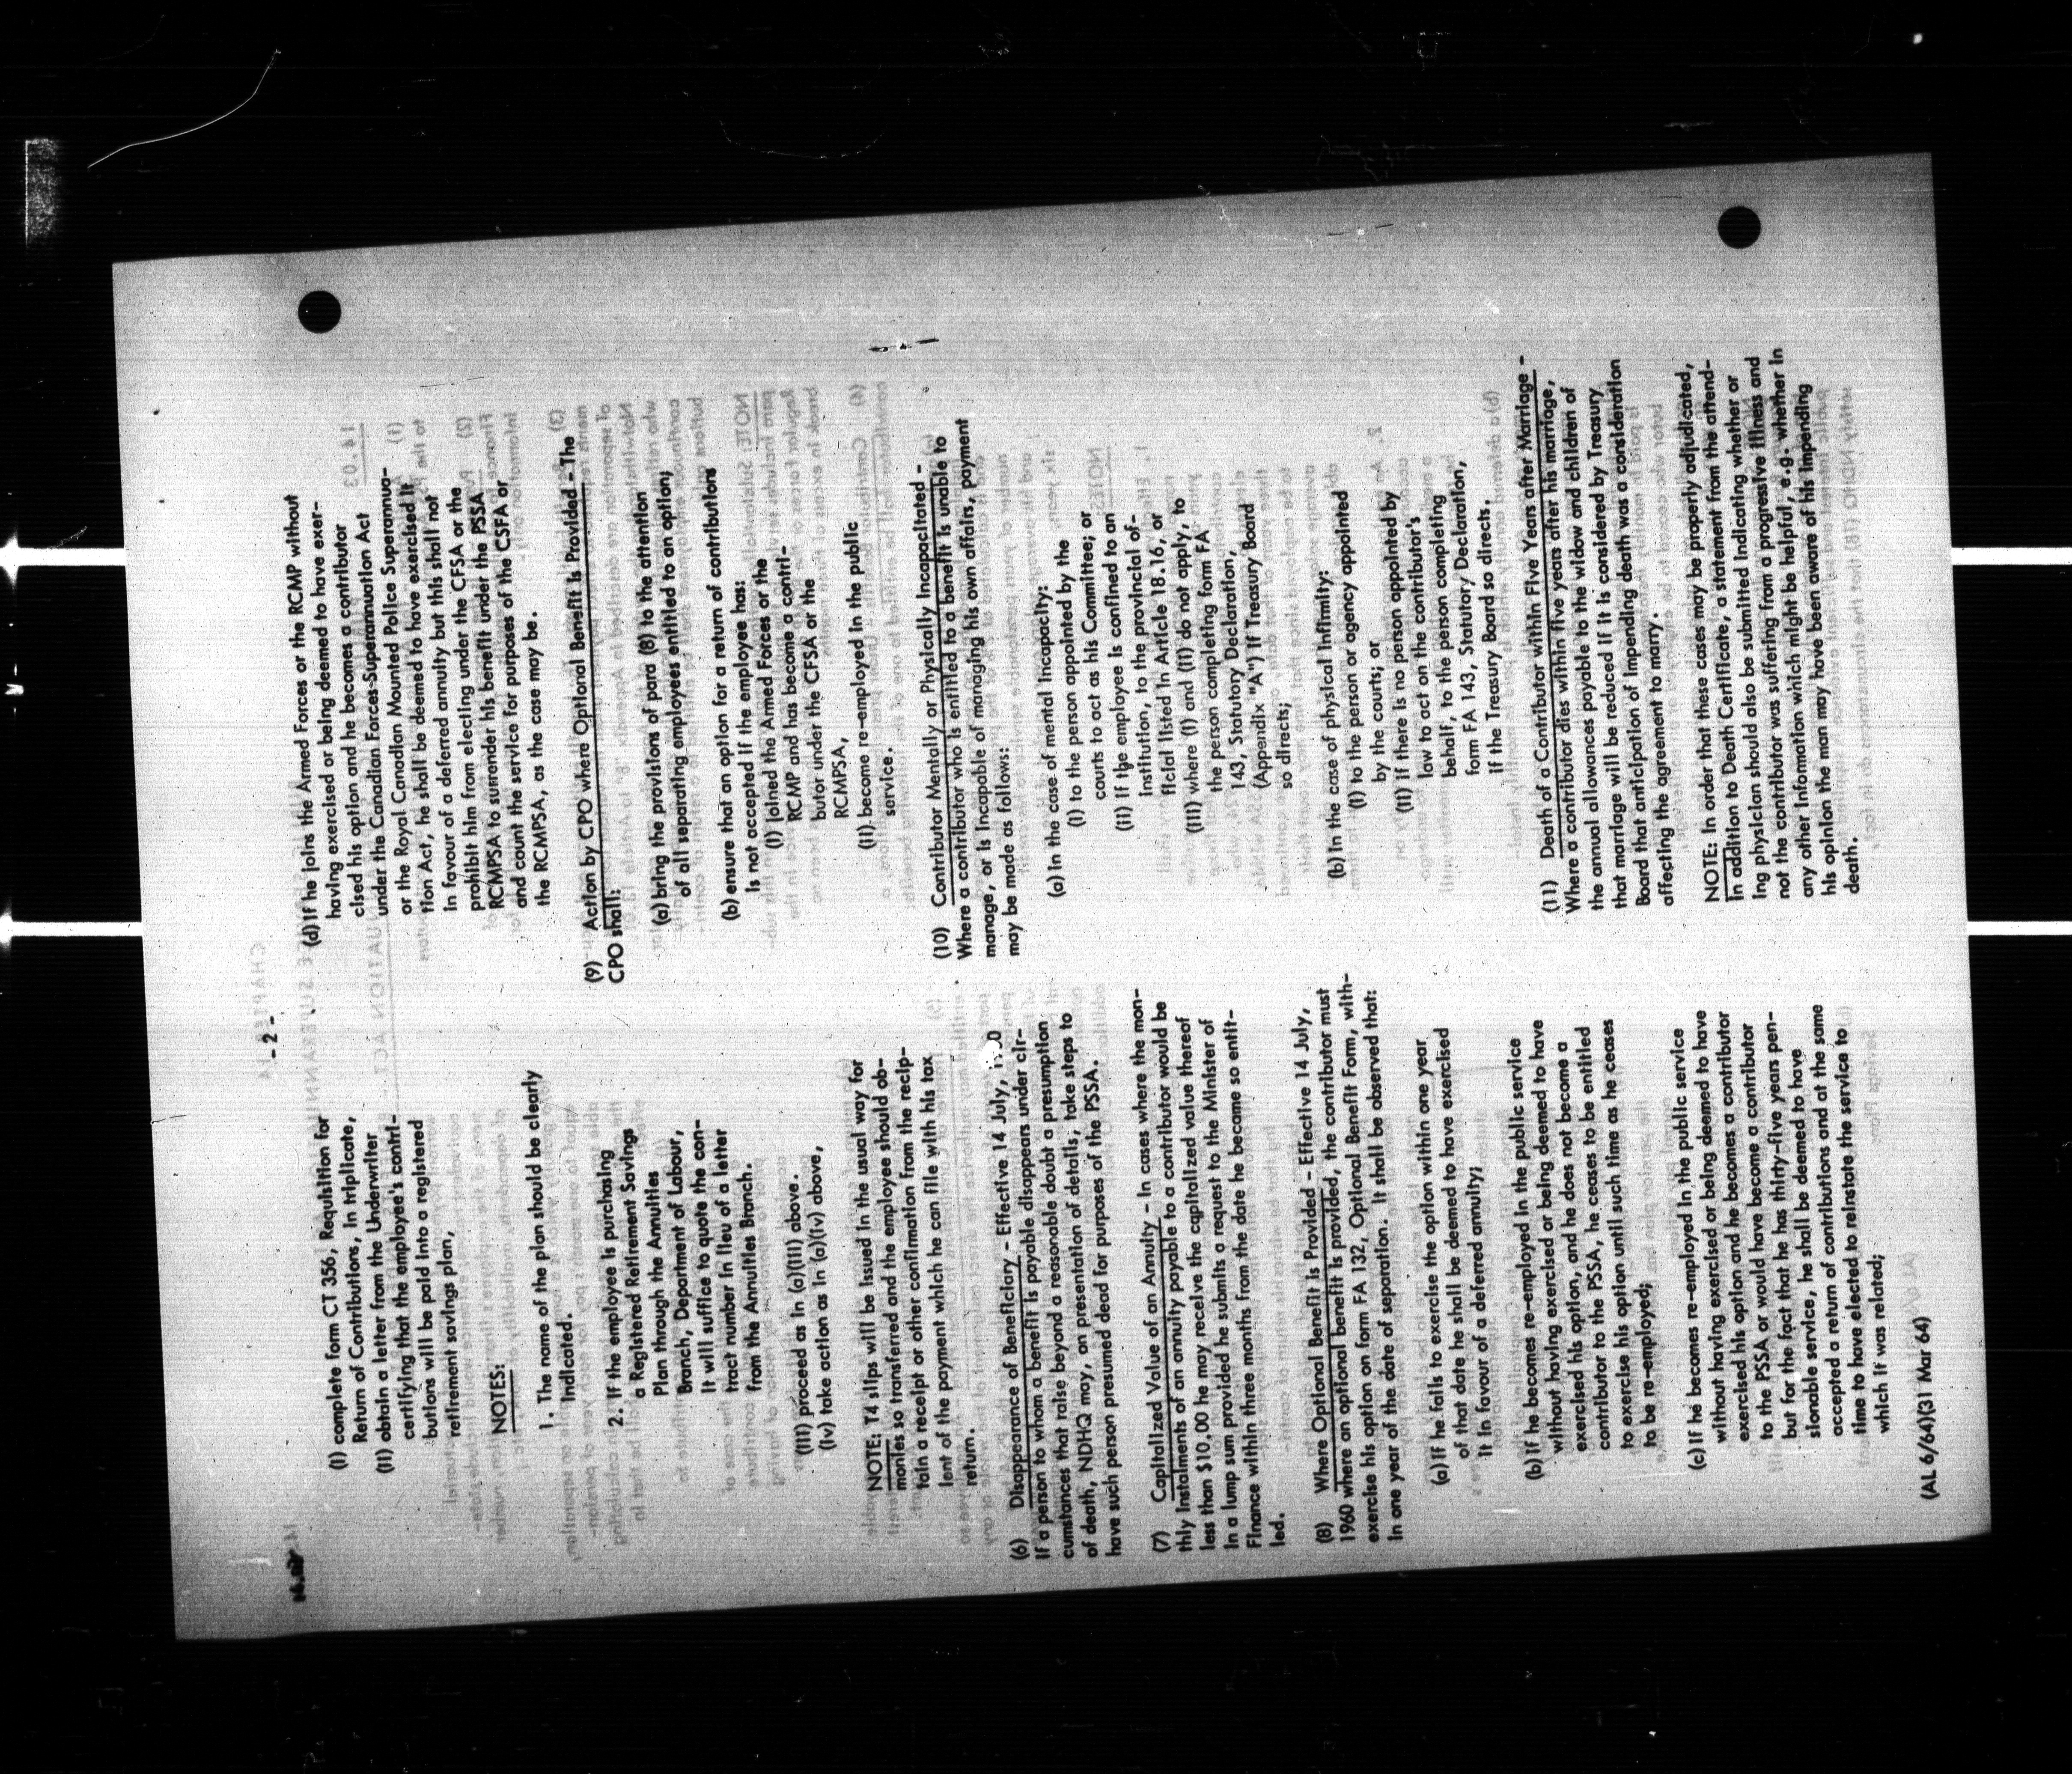 - 2 -
(i) complete form CT 356, Requisition for
Return of Contributions, in triplicate,
(ii) obtain a letter from the Underwriter
certifying that the employee's contri-
butions will be paid into a registered
retirement savings plan,
NOTES:
1. The name of the plan should be clearly
indicated.
2. If the employee is purchasing
a Registered Retirement Savings
Plan through the Annuities
Branch, Department of Labour,
it will suffice to quote the con-
tract number in lieu of a letter
from the Annuities Branch.
(iii) proceed as in (a)(iii) above.
(iv) take action as in (a)(iv) above,
NOTE: T4 slips will be issued in the usual way for
monies so transferred and the employee should ob-
tain a receipt or other confirmation from the recip-
ient of the payment which he can file with his tax
return.
(6) Disappearance of Beneficiary - Effective 14 July,
If a person to whom a benefit is payable disappears under cir-
cumstances that raise beyond a reasonable doubt a presumption
of death, NDHQ may, on presentation of details, take steps to
have such person presumed dead for purposes of the PSSA.
(7) Capitalized Value of an Annuity - In cases where the mon-
thly instalments of an annuity payable to a contributor would be
less than $10.00 he may receive the capitalized value thereof
in a lump sum provided he submits a request to the Minister of
Finance within three months from the date he became so entit-
led.
(8) Where Optional Benefit is Provided - Effective 14 July,
1960 where an optional benefit is provided, the contributor must
exercise his option on form FA 132, Optional Benefit Form, with-
in one year of the date of separation. It shall be observed that:
(a) if he fails to exercise the option within one year
of that date he shall be deemed to have exercised
it in favour of a deferred annuity;
(b) if he becomes re-employed in the public service
without having exercised or being deemed to have
exercised his option, and he does not become a
contributor to the PSSA, he ceases to be entitled
to exercise his option until such time as he ceases
to be re-employed;
(c) if he becomes re-employed in the public service
without having exercised or being deemed to have
exercised his option and he becomes a contributor
to the PSSA or would have become a contributor
but for the fact that he has thirty-five years pen-
sionable service, he shall be deemed to have
accepted a return of contributions and at the same
time to have elected to reinstate the service to
which it was related;
(d) if he joins the Armed Forces or the RCMP without
having exercised or being deemed to have exer-
cised his option and he becomes a contributor
under the Canadian Forces Superannuation Act
or the Royal Canadian Mounted Police Superannua-
tion Act, he shall be deemed to have exercised it
in favour of a deferred annuity but this shall not
prohibit him from electing under the CFSA or the
RCMPSA to surrender his benefit under the PSSA
and count the service for purposes of the CSFA or
the RCMPSA, as the case may be.
(9) Action by CPO where Optional Benefit is Provided - The
CPO shall:
(a) bring the provisions of para (8) to the attention
of all separating employees entitled to an option;
(b) ensure that an option for a return of contributions
is not accepted if the employee has:
(i) joined the Armed Forces or the
RCMP and has become a contri-
butor under the CFSA or the
RCMPSA,
(ii) become re-employed in the public
service.
(10) Contributor Mentally or Physically Incapacitated -
Where a contributor who is entitled to a benefit is unable to
manage, or is incapable of managing his own affairs, payment
may be made as follows:
(a) in the case of mental incapacity:
(i) to the person appointed by the
courts to act as his Committee; or
(ii) if the employee is confined to an
institution, to the provincial of-
ficial listed in Article 18.16, or
(iii) where (i) and (ii) do not apply, to
the person completing form FA
143, Statutory Declaration,
(Appendix "A") if Treasury Board
so directs;
(b) in the case of physical infirmity:
(i) to the person or agency appointed
by the courts; or
(ii) if there is no person appointed by
law to act on the contributor's
behalf, to the person completing
form FA 143, Statutory Declaration,
if the Treasury Board so directs.
(11) Death of a Contributor within Five Years after Marriage -
Where a contributor dies within five years after his marriage,
the annual allowances payable to the widow and children of
that marriage will be reduced if it is considered by Treasury
Board that anticipation of impending death was a consideration
affecting the agreement to marry.
NOTE: In order that these cases may be properly adjudicated,
in addition to Death Certificate, a statement from the attend-
ing physician should also be submitted indicating whether or
not the contributor was suffering from a progressive illness and
any other information which might be helpful, e.g. whether in
his opinion the man may have been aware of his impending
death.
(AL 6/64)(31 Mar 64)